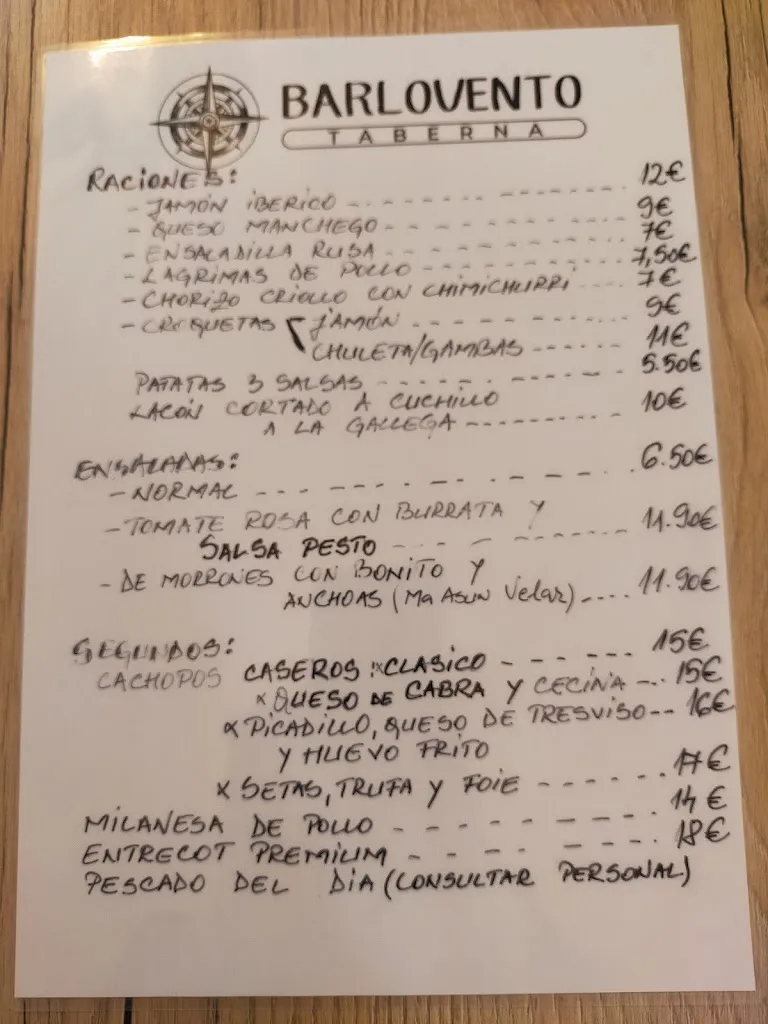 BARLOVENTO
TABERNA
RACIONES:
- JAMÓN IBERICO - - - - - - - - - 12€
- QUESO MANCHEGO - - - - - - - - 9€
- ENSALADILLA RUSA - - - - - - - - 7€
- LAGRIMAS DE POLLO - - - - - - - 7,50€
- CHORIZO CRIOLLO CON CHIMICHURRI - - - 7€
- CROQUETAS JAMÓN - - - - - - - - 9€
CHULETA/GAMBAS - - - - - 11€
PATATAS 3 SALSAS - - - - - - - - 5.50€
LACÓN CORTADO A CUCHILLO
A LA GALLEGA - - - - - - - - 10€
ENSALADAS:
- NORMAL - - - - - - - - - - 6.50€
- TOMATE ROSA CON BURRATA Y
SALSA PESTO - - - - - - - - 11.90€
- DE MORRONES CON BONITO Y
ANCHOAS (Ma ASUN Velar) - .... 11.90€
SEGUNDOS:
CACHOPOS CASEROS: x CLASICO - - - - - - 15€
x QUESO DE CABRA Y CECINA - - - 15€
x PICADILLO, QUESO DE TRESVISO - - 16€
Y HUEVO FRITO
x SETAS, TRUFA Y FOIE - - - - - - 17€
MILANESA DE POLLO - - - - - - - - 14€
ENTRECOT PREMIUM - - - - - - - - 18€
PESCADO DEL DIA (CONSULTAR PERSONAL)